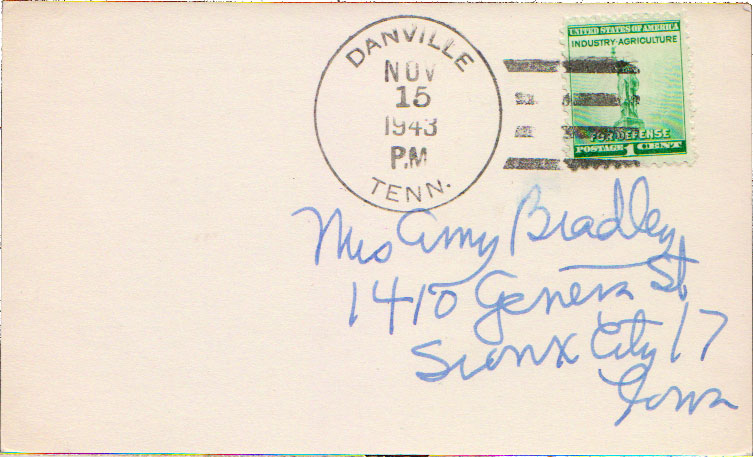 DANVILLE
NOV
15
1943
P.M.
TENN.
UNITED STATES OF AMERICA
INDUSTRY-AGRICULTURE
FOR DEFENSE
POSTAGE 1 CENT
Mrs Amy Bradley
1410 Geneva St.
Sioux City 17
Iowa